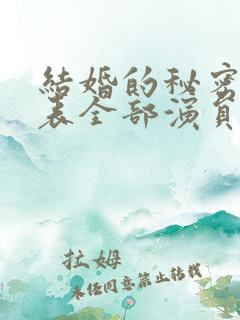 結婚的秘密
表全部演員
拉姆
未经同意禁止转载